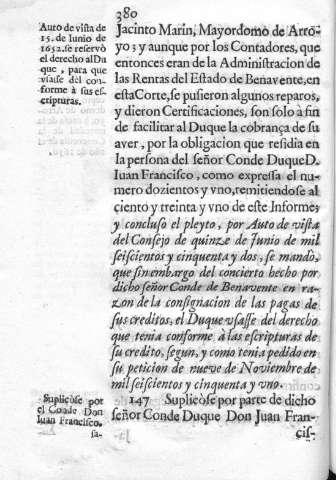 380
Auto de vista de
15. de Iunio de
1652. se reservò
el derecho al Du
que, para que
vsasse del con-
forme à sus es-
cripturas.
Jacinto Marin, Mayordomo de Arro-
yo; y aunque por los Contadores, que
entonces eran de la Administracion de
las Rentas del Estado de Benavente, en
esta Corte, se pusieron algunos reparos,
y dieron Certificaciones, son solo à fin
de facilitar al Duque la cobrança de su
aver, por la obligacion que residia en
la persona del señor Conde Duque D.
Iuan Francisco, como expressa el nu-
mero dozientos y vno, remitiendose al
ciento y treinta y vno de este Informe;
y concluso el pleyto, por Auto de vista
del Consejo de quinze de Iunio de mil
seiscientos y cinquenta y dos, se mandò,
que sin embargo del concierto hecho por
dicho señor Conde de Benavente en ra-
zon de la consignacion de las pagas de
sus creditos, el Duque vsasse del derecho
que tenia conforme à las escripturas de
su credito, segun, y como tenia pedido en
su peticion de nueve de Noviembre de
mil seiscientos y cinquenta y vno.
Suplicòse por
el Conde Don
Iuan Francisco.
sa-
147 Suplicòse por parte de dicho
señor Conde Duque Don Juan Fran-
cis-